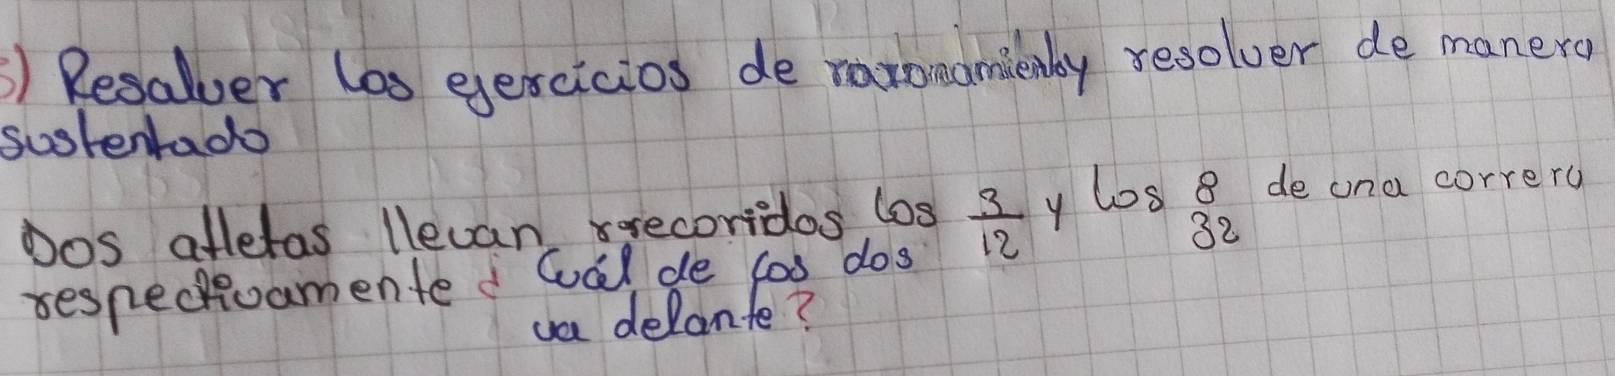 3) Resalver los ejercicios de razonamiento y resolver de manera
sustentado
Dos atletas llevan recoridos los 3/12 y los 8/32 de una correra
respectivamente ¿ Cuál de los dos
va delante?